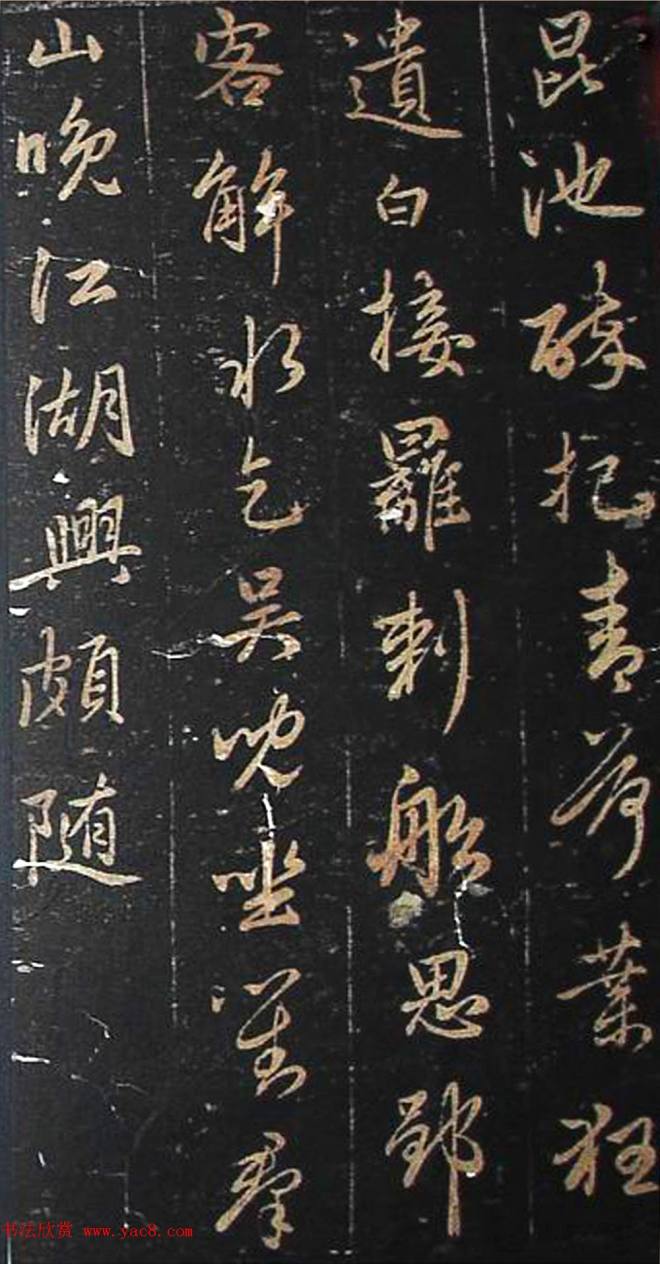 昆池醉把青荷葉狂
遺白接䍦刺船思郢
客解水乞吳兒坐對秦
山晚江湖興頗隨
书法欣赏 www.yac8.com